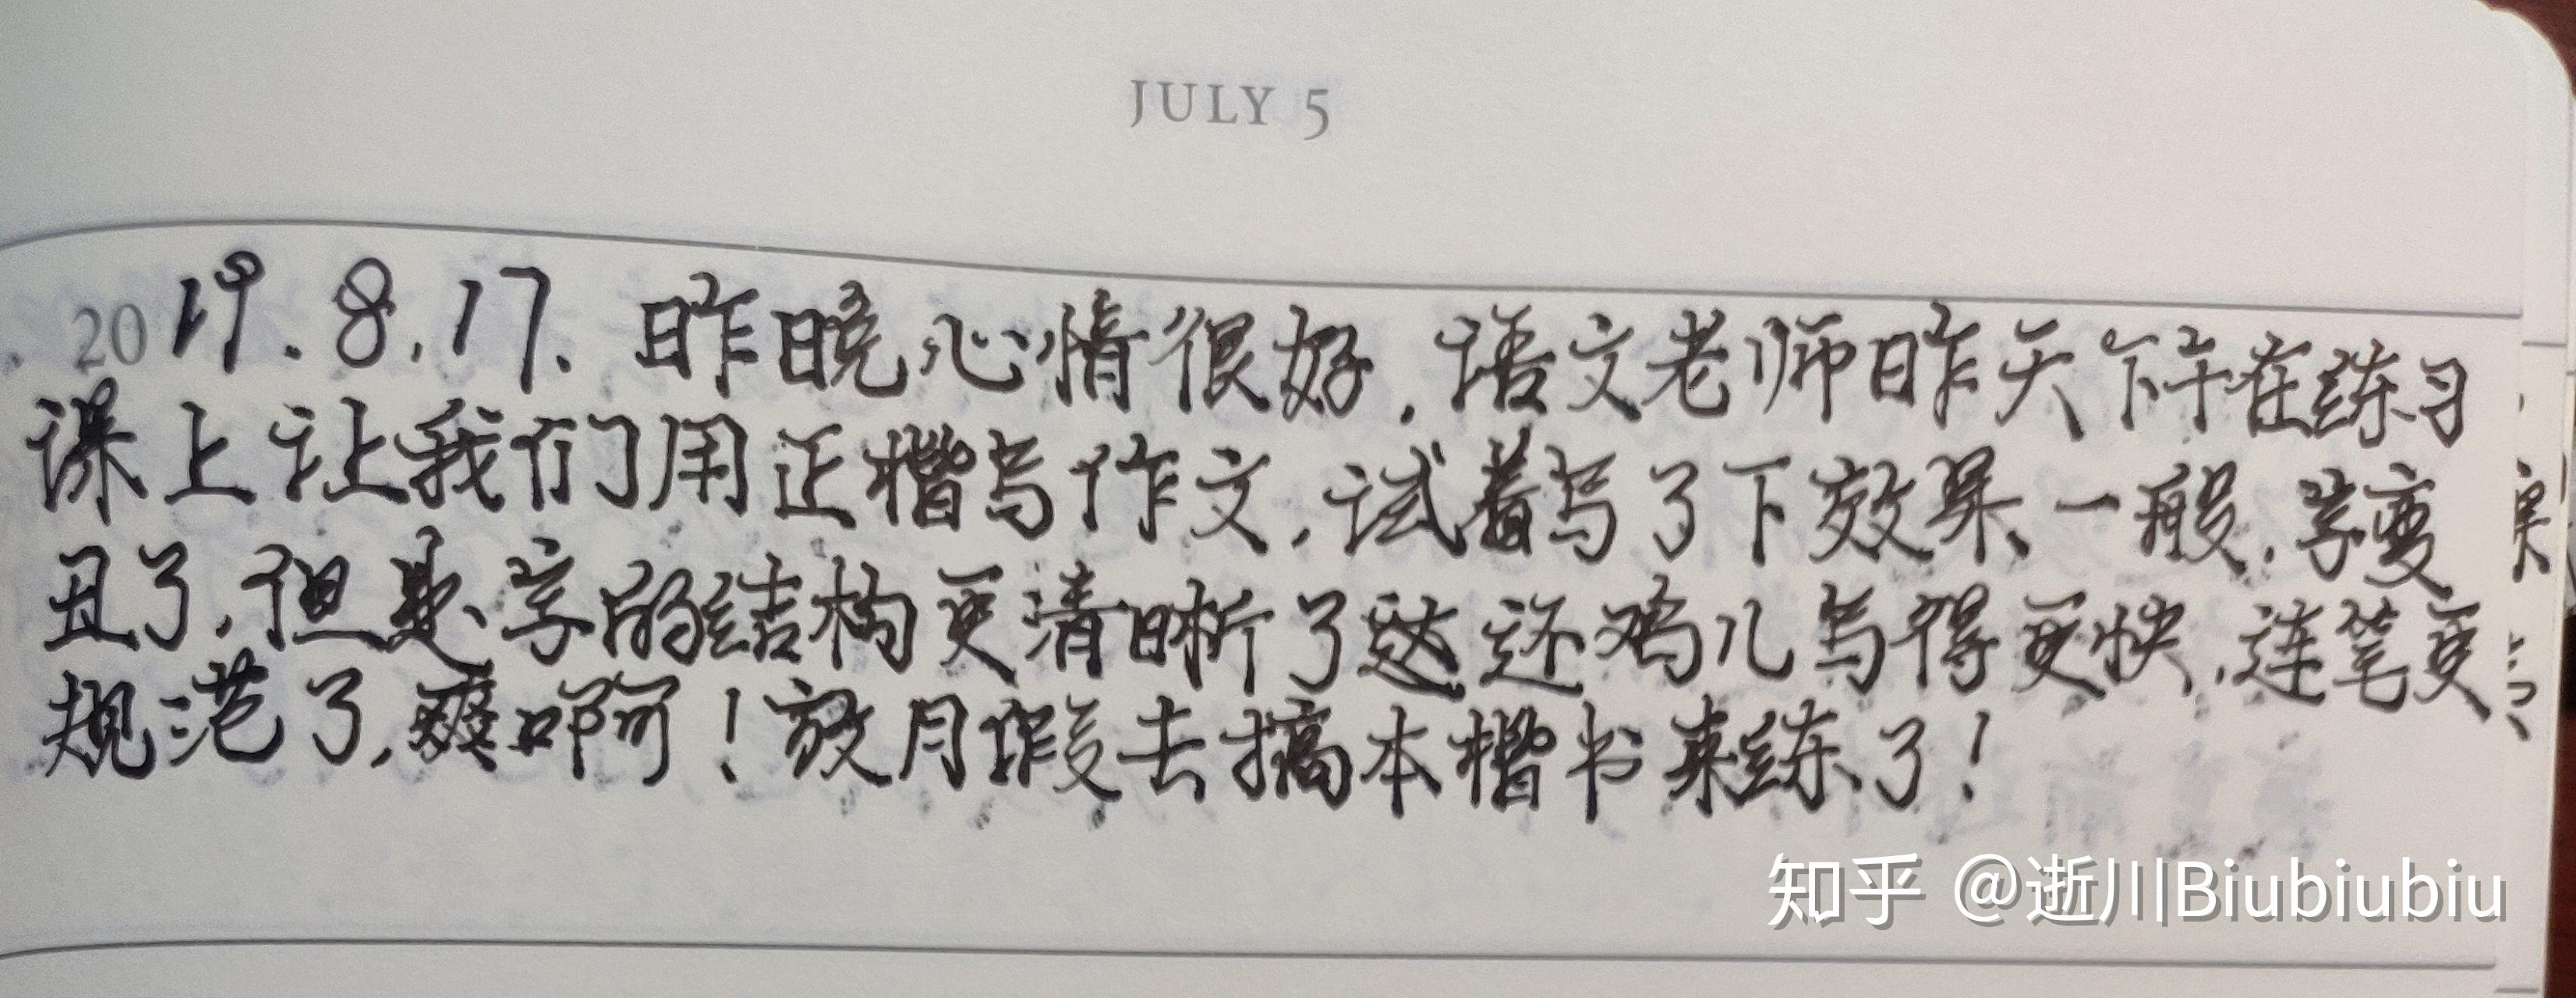 JULY 5
2019.8.17. 昨晚心情很好.语文老师昨天下午在练习
课上让我们用正楷写作文.试着写了下效果一般.字变
丑了.但是字的结构更清晰了这还鸡儿写得更快.连笔更
规范了.爽啊!放月假去搞本楷书来练了!
知乎 @逝川Biubiubiu